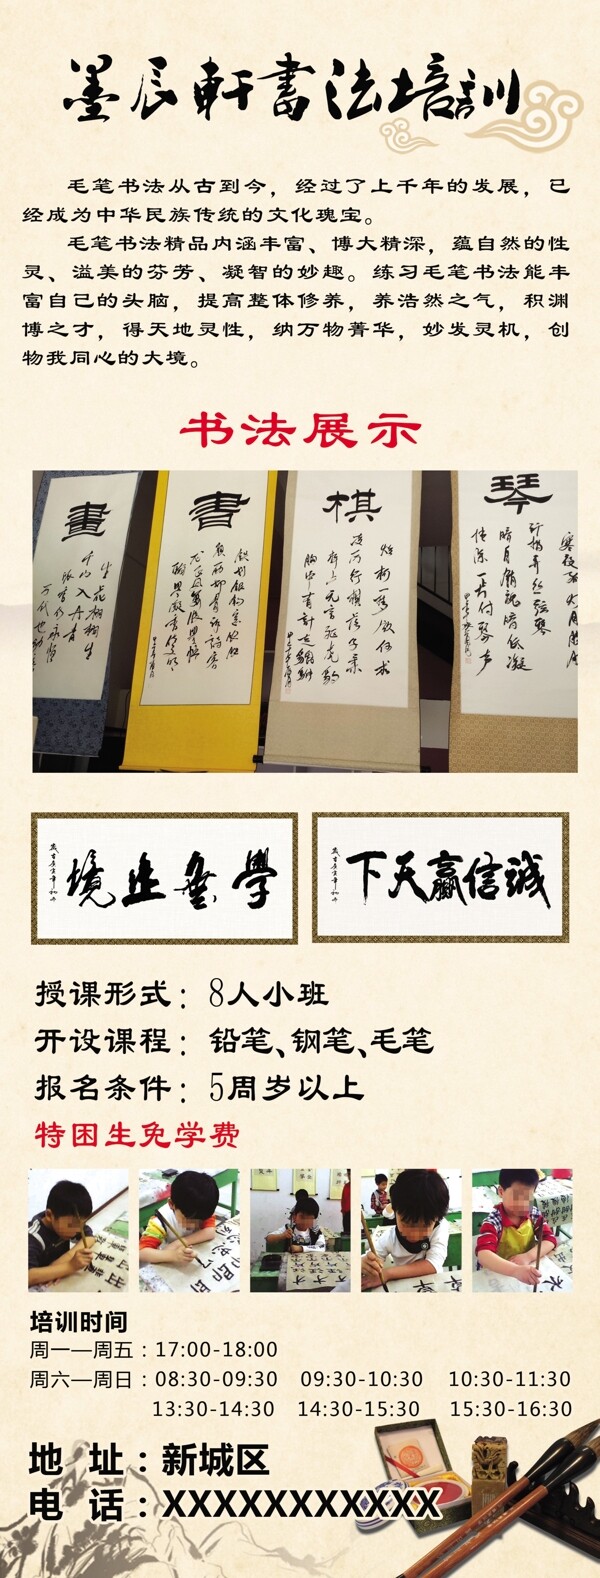 墨辰軒書法培訓
毛笔书法从古到今，经过了上千年的发展，已
经成为中华民族传统的文化瑰宝。
毛笔书法精品内涵丰富、博大精深，蕴自然的性
灵、溢美的芬芳、凝智的妙趣。练习毛笔书法能丰
富自己的头脑，提高整体修养，养浩然之气，积渊
博之才，得天地灵性，纳万物菁华，妙发灵机，创
物我同心的大境。
书法展示
畫 書 棋 琴
境止無學
下天贏信誠
授课形式：8人小班
开设课程：铅笔、钢笔、毛笔
报名条件：5周岁以上
特困生免学费
培训时间
周一—周五：17:00-18:00
周六—周日：08:30-09:30 09:30-10:30 10:30-11:30
13:30-14:30 14:30-15:30 15:30-16:30
地 址：新城区
电 话：XXXXXXXXXXX